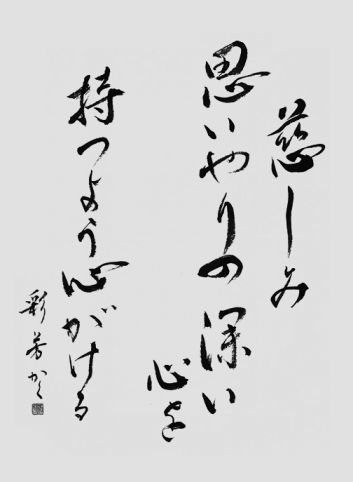 慈しみ
思いやりの深い
心を
持つよう心がける
彩芳かく